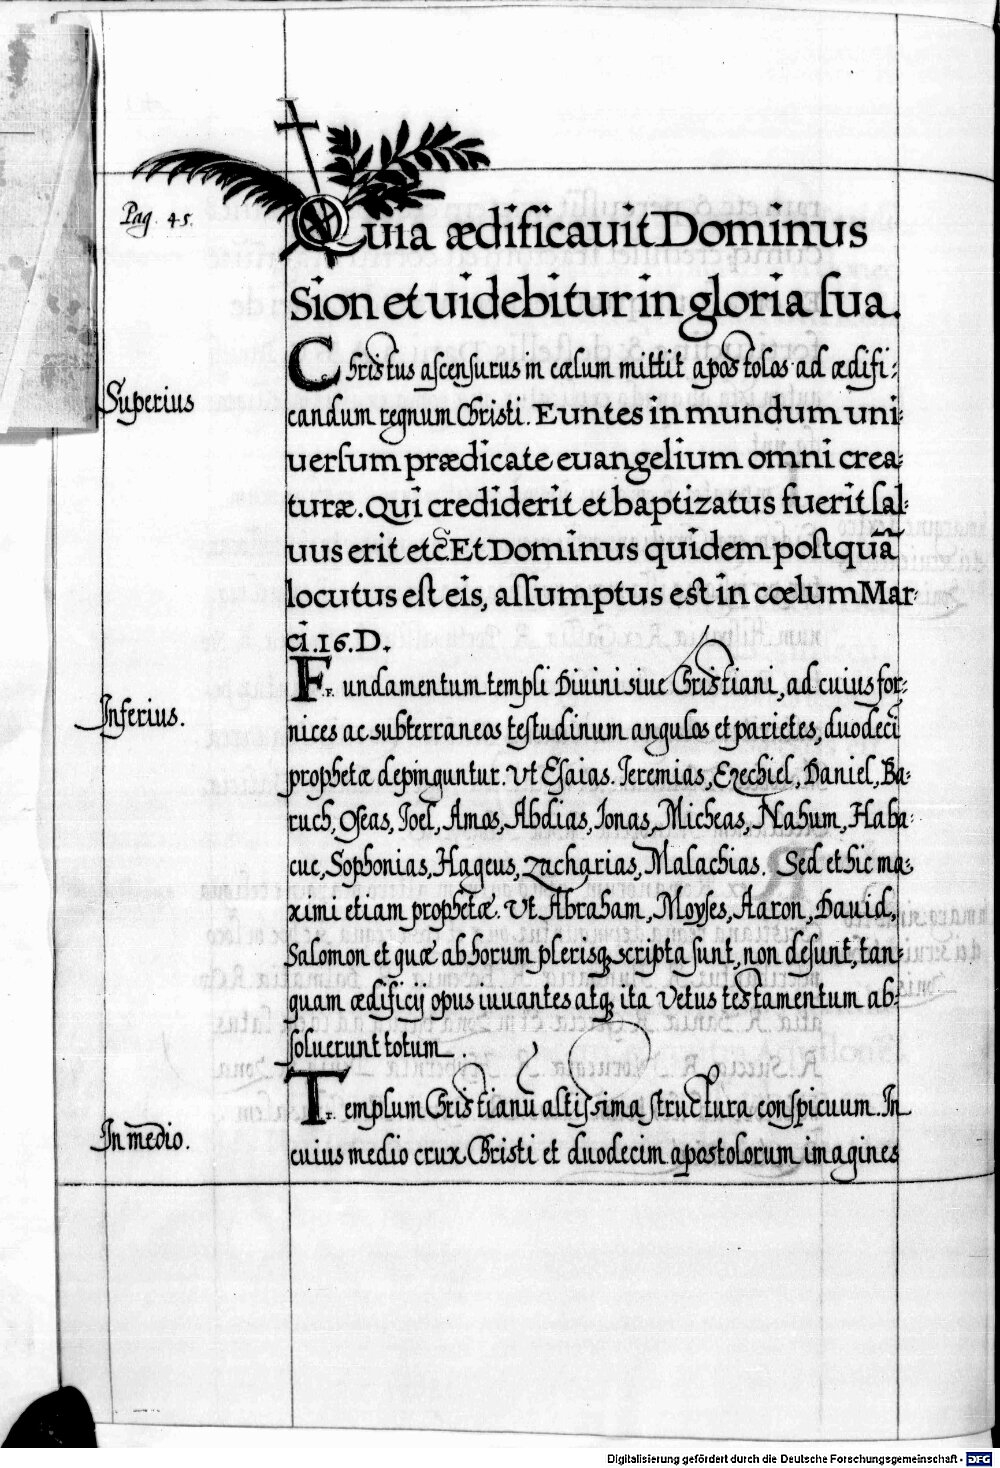 Pag. 45.
Quia ædificauit Dominus
Sion et uidebitur in gloria sua.
Superius
Christus ascensurus in cælum mittit apostolos ad ædifi-
candum regnum Christi. Euntes in mundum uni-
uersum prædicate euangelium omni crea-
turæ. Qui crediderit et baptizatus fuerit sal-
uus erit etc. Et Dominus quidem postquã
locutus est eis, assumptus est in cœlum Mar-
ci. 16. D.
Inferius.
Fundamentum templi Diuini siue Christiani, ad cuius for-
nices ac subterraneos testudinum angulos et parietes, duodeci
prophetæ depinguntur. Vt Esaias. Jeremias, Ezechiel, Daniel, Ba-
ruch, Oseas, Joel, Amos, Abdias, Jonas, Micheas, Nahum, Haba-
cuc, Sophonias, Hageus, Zacharias, Malachias. Sed et hic ma-
ximi etiam prophetæ. Vt Abraham, Moyses, Aaron, Dauid,
Salomon et quæ ab horum plerisq; scripta sunt, non desunt, tan-
quam ædificij opus iuuantes atq; ita Vetus testamentum ab-
soluerunt totum.
In medio.
Templum Christianũ altissima structura conspicuum. In
cuius medio crux Christi et duodecim apostolorum imagines
Digitalisierung gefördert durch die Deutsche Forschungsgemeinschaft - DFG